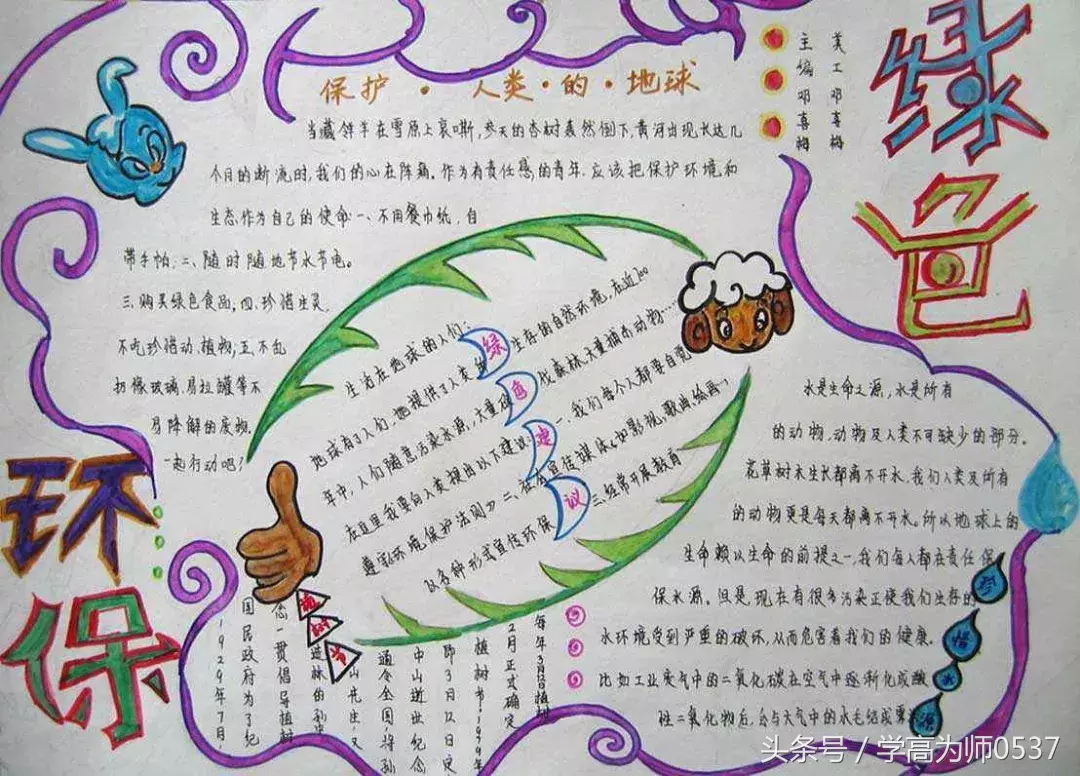 绿色
环保
主编 邓喜梅
美工 邓喜梅
保护·人类·的·地球
当藏羚羊在雪原上哀嘶,参天的杏树轰然倒下,黄河出现长达几
个月的断流时,我们的心在阵痛。作为有责任感的青年,应该把保护环境和
生态作为自己的使命:一、不用餐巾纸,自
带手帕;二、随时随地节水节电。
三.购买绿色食品;四.珍惜生灵,
不吃珍惜动、植物;五、不乱
扔像玻璃、易拉罐等不
易降解的废物.
一起行动吧!
绿色建议
生活在地球的人们:
地球有了人们,她提供了人类
生存的自然环境,在近100
年中,人们随意污染水源,大量砍
伐森林,大量捕杀动物……
在这里我要向人类提出以下建议:
一、我们每个人都要自觉
遵守《环境保护法则》二、在各宣传媒体《如影视,歌曲,绘画
以各种形式宣传环保
三.经常开展教育
植树节
每年3月12日植树
植树节.1979年
2月正式确定
即3月12日定
中山逝世纪念
通令全国,将孙
山先生,又
念一贯倡导植树
国民政府为了纪
1929年7月,
水是生命之源,水是所有
的动物,动物及人类不可缺少的部分。
花草树木生长都离不开水,我们人类及所有
的动物更是每天都离不开水。所以地球上的
生命赖以生命的前提之一,我们每人都在责任保
保水源。但是,现在有很多污染正使我们生存的
水环境受到严重的破坏,从而危害着我们的健康。
比如工业废气中的二氧化碳在空气中逐渐化成酸
性二氧化物后,会与大气中的水毛结成雾
珍惜水源
头条号/学高为师0537